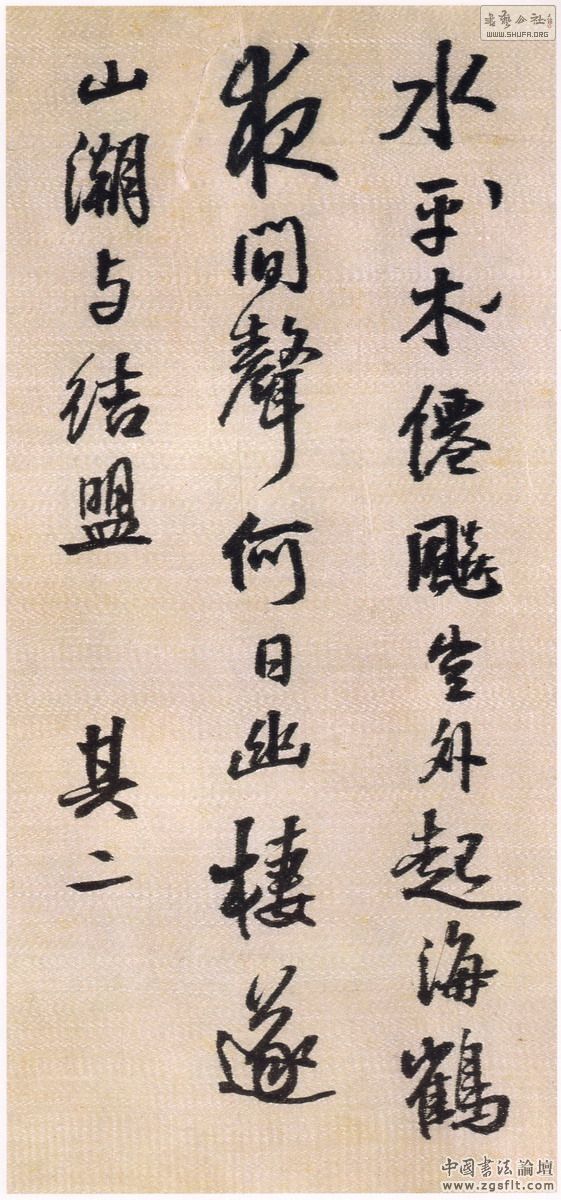 水平木僊飈空外起海鶴
夜間聲何日幽棲遂
山潮与結盟 其二
書藝公社
WWW.SHUFA.ORG
中國書法論壇
www.zgsflt.com